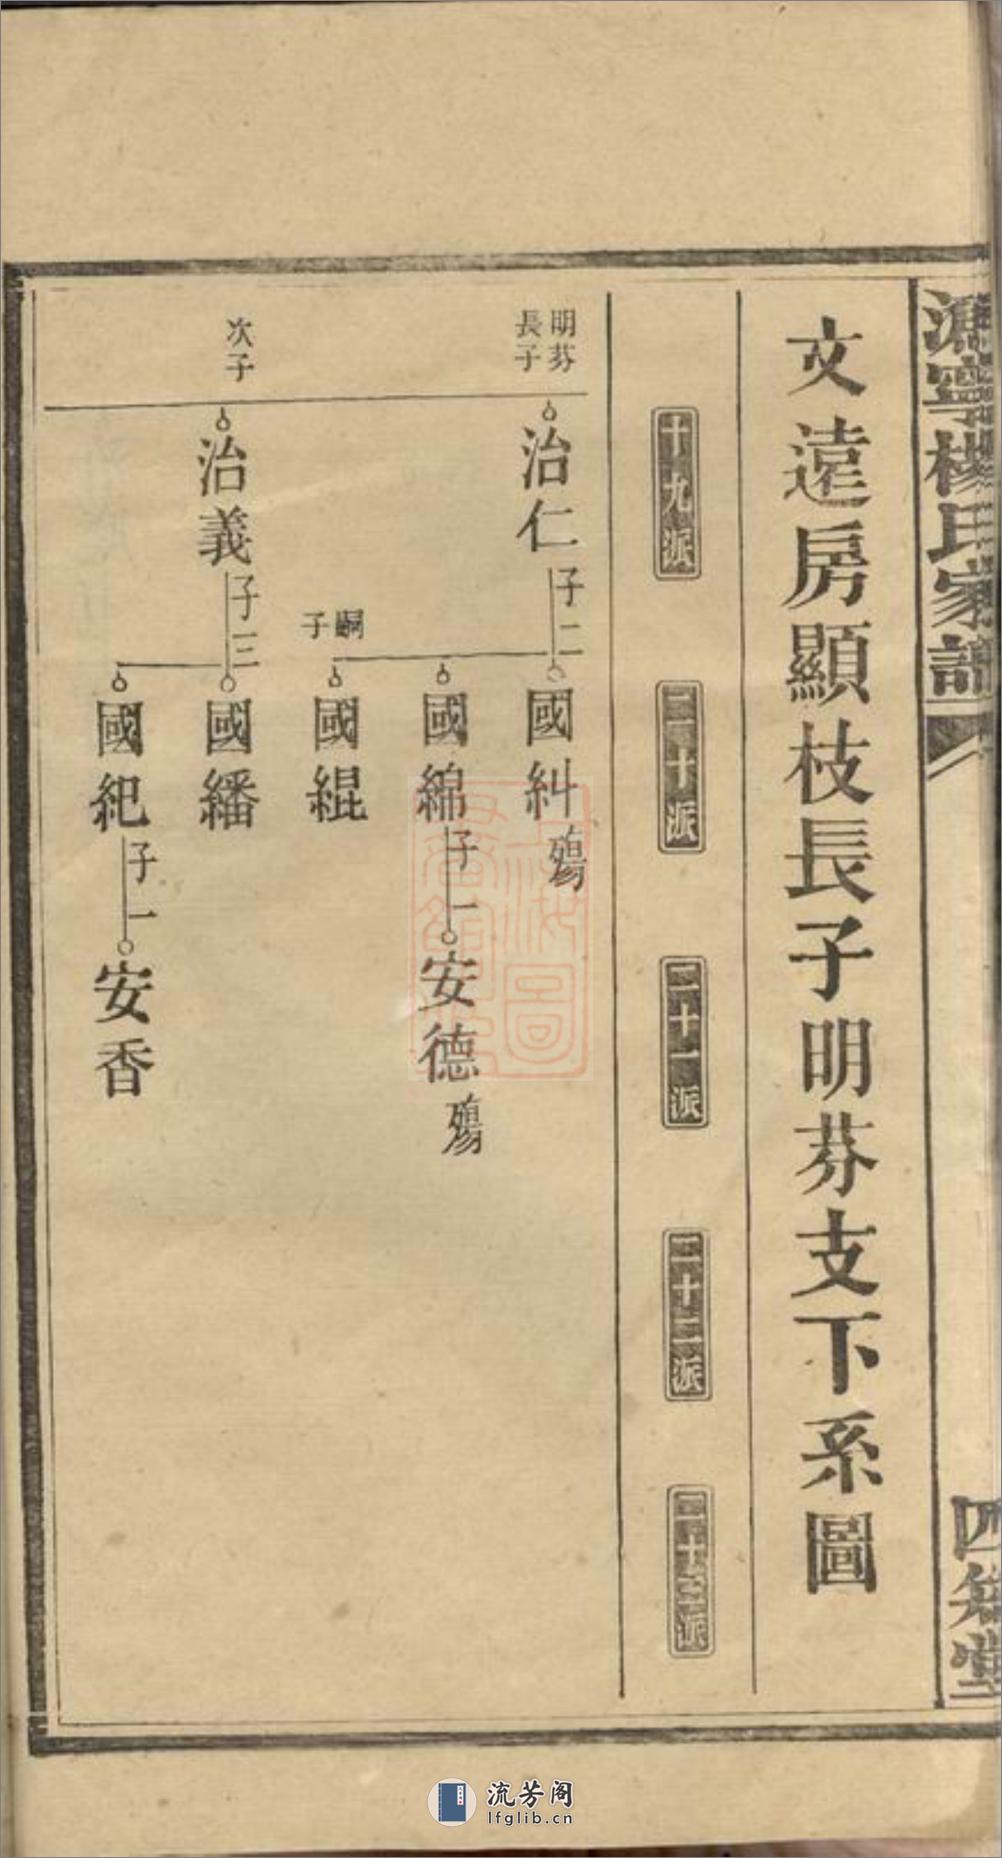 溈寧楊氏家譜
四知堂
文遠房顯枝長子明芬支下系圖
十九派
二十派
二十一派
二十二派
二十三派
明芬
長子
治仁
子二
國糾
殤
國綿
子一
安德
殤
嗣子
國緄
次子
治義
子三
國繙
國紀
子一
安香
流芳阁
lfglib.cn